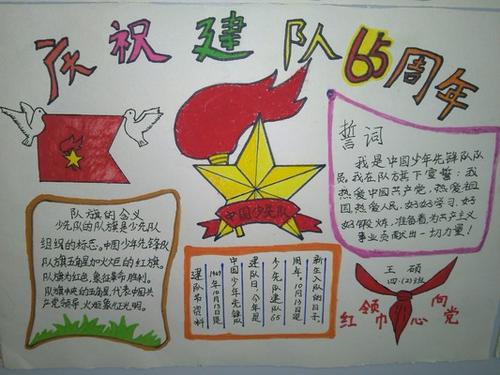 庆祝建队65周年
誓词
我是中国少年先锋队队
员,我在队旗下宣誓:我
热爱中国共产党,热爱祖
国,热爱人民,好好学习,好
好锻炼,准备着为共产主义
事业贡献出一切力量!
中国少先队
队旗的含义
少先队的队旗是少先队
组织的标志。中国少年先锋队
队旗五角星加火炬的红旗。
队旗为红色,象征革命胜利。
队旗中央的五角星,代表中国共
产党领导,火炬象征光明。
新生入队的日子。
周年。10月13日是
少先队建队65
建队日,今年是
中国少年先锋队
1949年10月13日是
建队节资料
王硕
四.(2)班
红领巾心向党